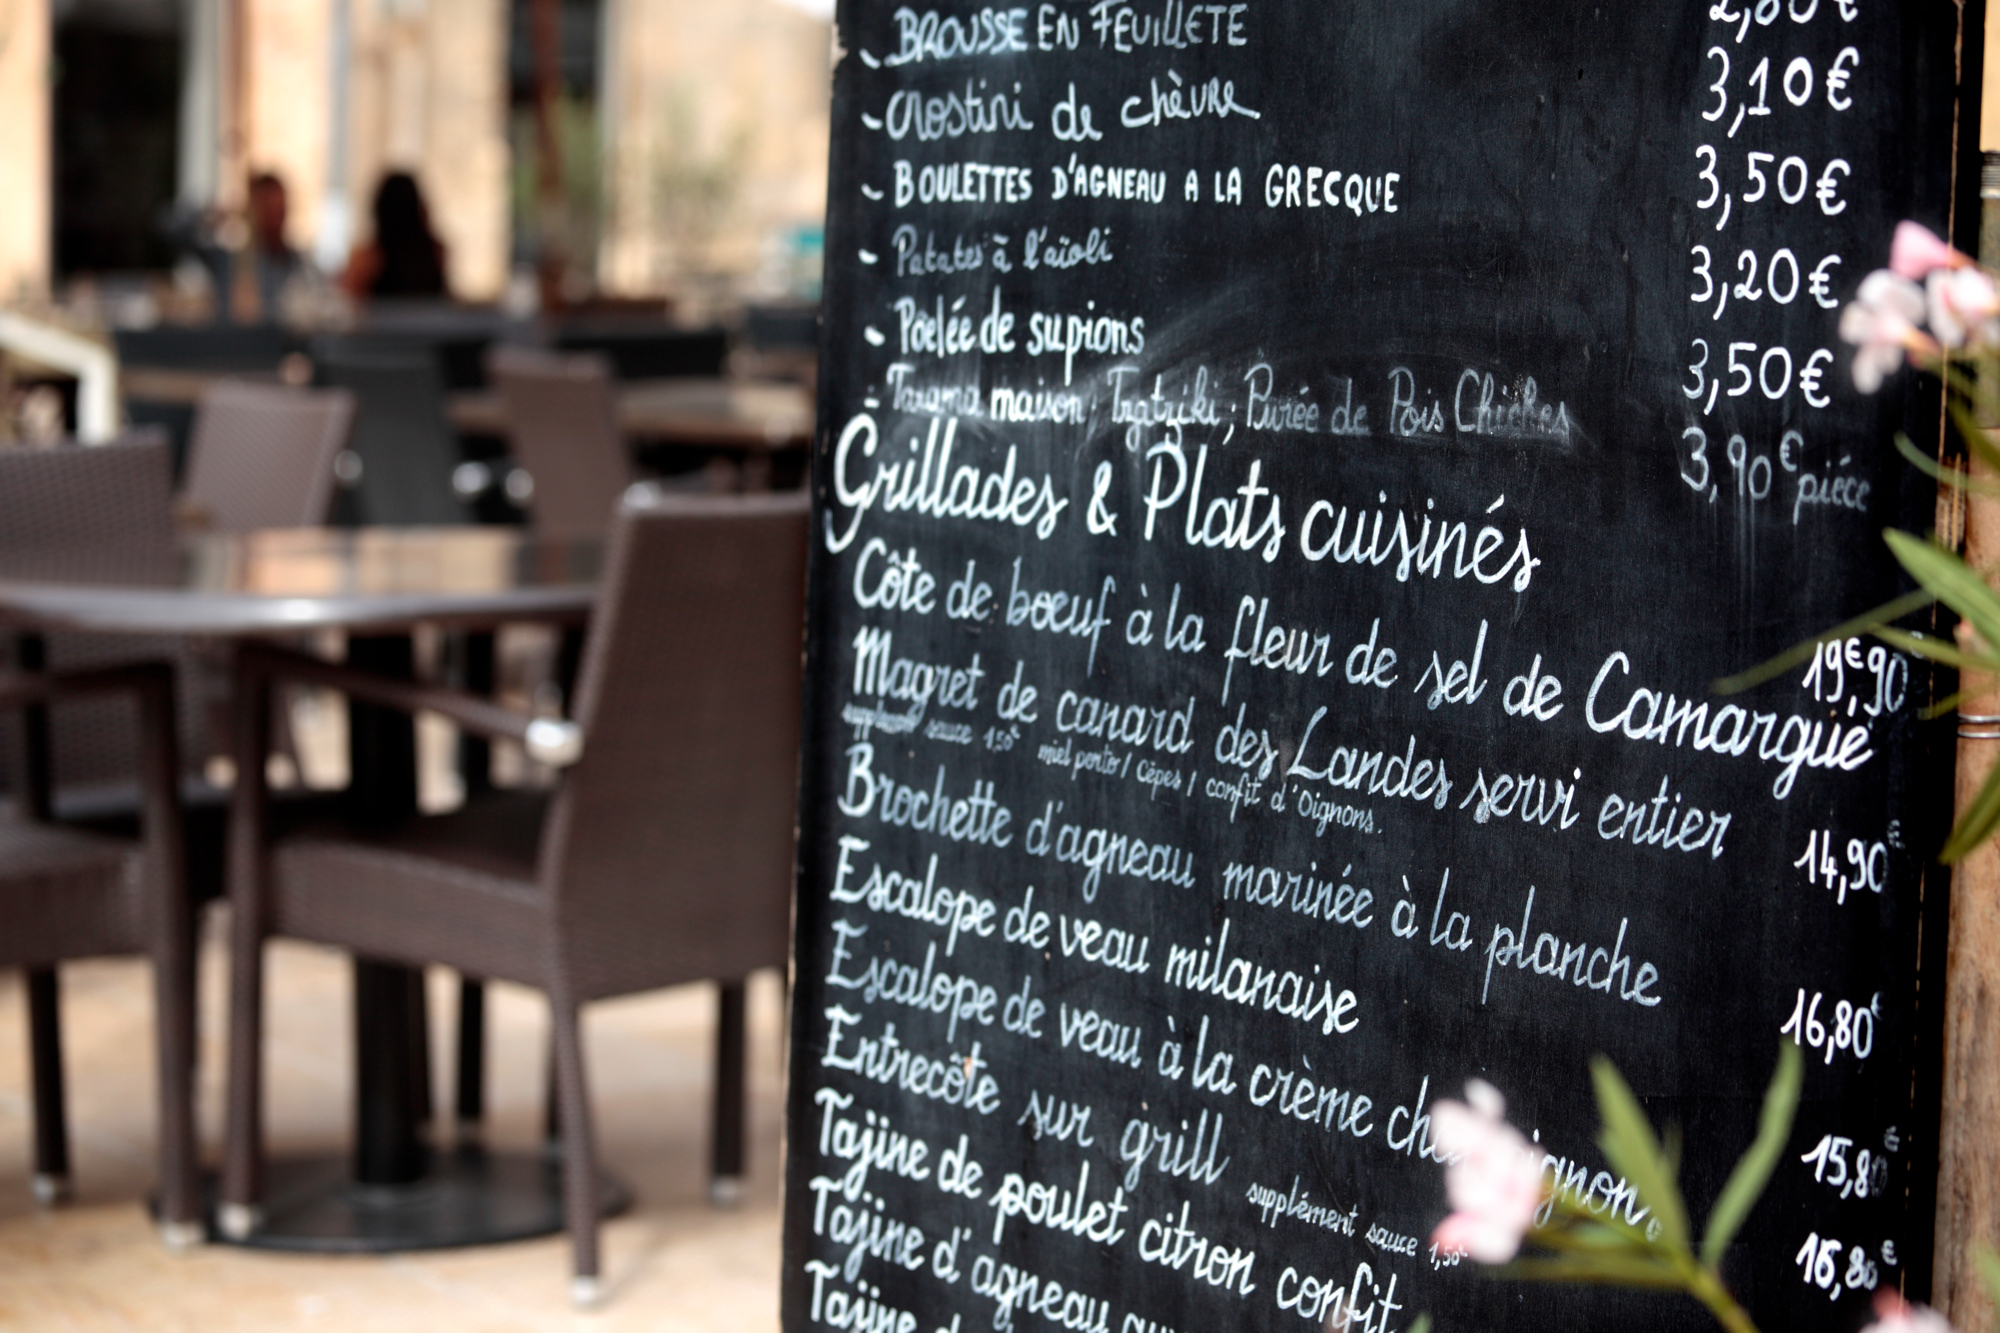 BROUSSE EN FEUILLETE
3,10€
crostini de chèvre
3,50€
BOULETTES D'AGNEAU A LA GRECQUE
3,20€
Patates à l'aïoli
3,50€
Poelée de supions
3,90€ piéce
Tarama maison; Tzatziki; Purée de Pois Chiches
Grillades & Plats cuisinés
Côte de boeuf à la fleur de sel de Camargue
19€,90
Magret de canard des Landes servi entier
14,90€
supplément sauce 1,50€ miel porto / cèpes / confit d'Oignons.
Brochette d'agneau marinée à la planche
16,80€
Escalope de veau milanaise
15,80€
Escalope de veau à la crème
16,80€
Entrecôte sur grill supplément sauce 1,50€
Tajine de poulet citron confit
Tajine d'agneau
Tajine